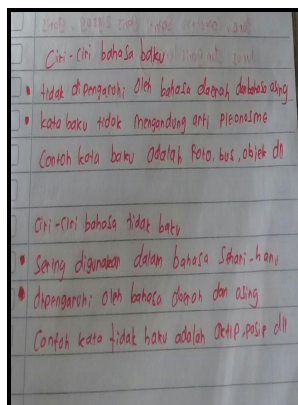 Ciri-ciri bahasa baku
• tidak dipengaruhi oleh bahasa daerah dan bahasa asing
• kata baku tidak mengandung arti pleonasme
Contoh kata baku adalah foto, bus, objek dll
Ciri-ciri bahasa tidak baku
• Sering digunakan dalam bahasa sehari-hari
• dipengaruhi oleh bahasa daerah dan asing
Contoh kata tidak baku adalah aktip, pasip dll